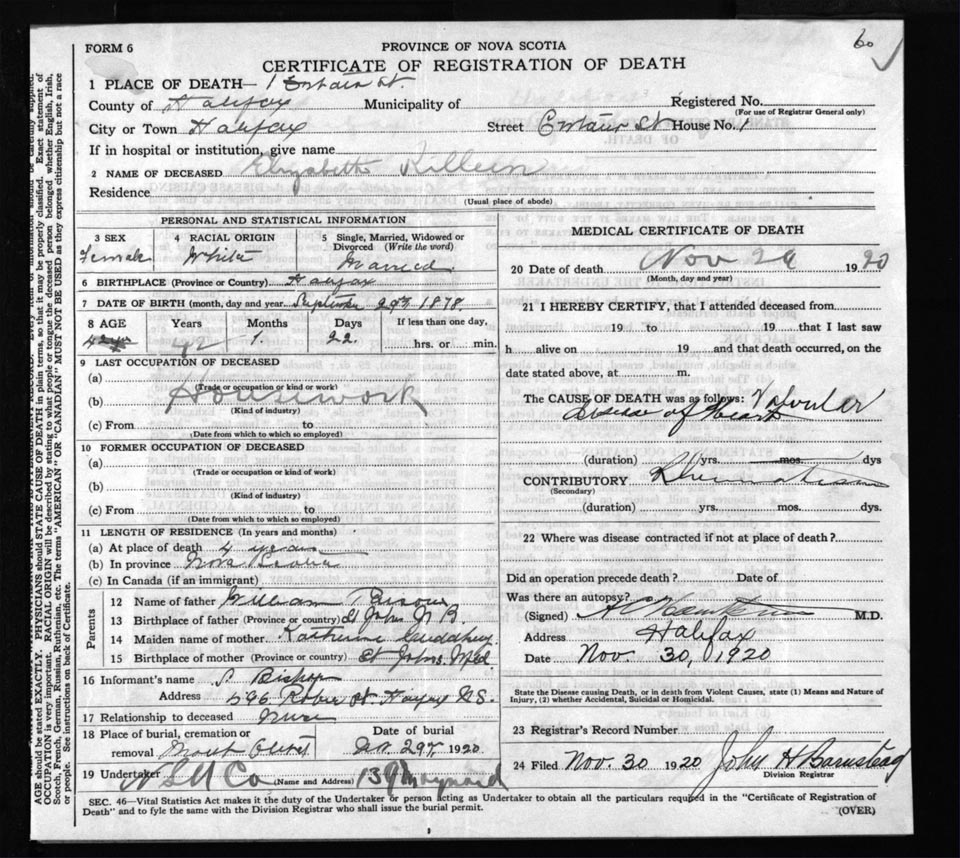 FORM 6
PROVINCE OF NOVA SCOTIA
60
CERTIFICATE OF REGISTRATION OF DEATH
1 PLACE OF DEATH— 1 St.
County of Halifax Municipality of Registered No.
(For use of Registrar General only)
City or Town Halifax Street St House No. 1
If in hospital or institution, give name
2 NAME OF DECEASED Elizabeth Killeen
Residence
(Usual place of abode)
PERSONAL AND STATISTICAL INFORMATION
3 SEX 4 RACIAL ORIGIN 5 Single, Married, Widowed or Divorced (Write the word)
Female White Married
6 BIRTHPLACE (Province or Country) Halifax
7 DATE OF BIRTH (month, day and year) 1878.
8 AGE Years Months Days If less than one day,
42 1. 22. hrs. or min.
9 LAST OCCUPATION OF DECEASED
(a)
(Trade or occupation or kind or work)
(b) Housework
(Kind of industry)
(c) From to
(Date from which to which so employed)
10 FORMER OCCUPATION OF DECEASED
(a)
(Trade or occupation or kind of work)
(b)
(Kind of industry)
(c) From to
(Date from which to which so employed)
11 LENGTH OF RESIDENCE (In years and months)
(a) At place of death 4 years
(b) In province Nova Scotia
(c) In Canada (if an immigrant)
Parents
12 Name of father William
13 Birthplace of father (Province or country) St John N B.
14 Maiden name of mother Katherine
15 Birthplace of mother (Province or country) St Johns Nfld
16 Informant's name Bishop
Address St. N.S.
17 Relationship to deceased
18 Place of burial, cremation or removal Mount Olivet Date of burial 29 1920
19 Undertaker Co (Name and Address) Maynard
MEDICAL CERTIFICATE OF DEATH
20 Date of death Nov 1920
(Month, day and year)
21 I HEREBY CERTIFY, that I attended deceased from
19 to 19 that I last saw
h alive on 19 and that death occurred, on
date stated above, at m.
The CAUSE OF DEATH was as follows: Valvular
disease of heart
(duration) yrs. mos. dys
CONTRIBUTORY Rheumatism
(Secondary)
(duration) yrs. mos. dys.
22 Where was disease contracted if not at place of death?
Did an operation precede death? Date of
Was there an autopsy?
(Signed) M.D.
Address Halifax
Date Nov. 30, 1920
State the Disease causing Death, or in death from Violent Causes, state (1) Means and Nature of Injury, (2) whether Accidental, Suicidal or Homicidal.
23 Registrar's Record Number
24 Filed Nov. 30 1920 John H Barnstead
Division Registrar
SEC. 46—Vital Statistics Act makes it the duty of the Undertaker or person acting as Undertaker to obtain all the particulars required in the "Certificate of Registration of
Death" and to fyle the same with the Division Registrar who shall issue the burial permit.
(OVER)
AGE should be stated EXACTLY. PHYSICIANS should STATE CAUSE OF DEATH in plain terms, so that it may be properly classified. Exact statement of
OCCUPATION is very important. RACIAL ORIGIN will be described by stating to what people or tongue the deceased person belonged whether English, Irish,
Scotch, French, German, Russian, Ruthenian, etc. The terms "AMERICAN" OR "CANADIAN" MUST NOT BE USED as they express citizenship but not a race
or people. See instructions on back of Certificate.